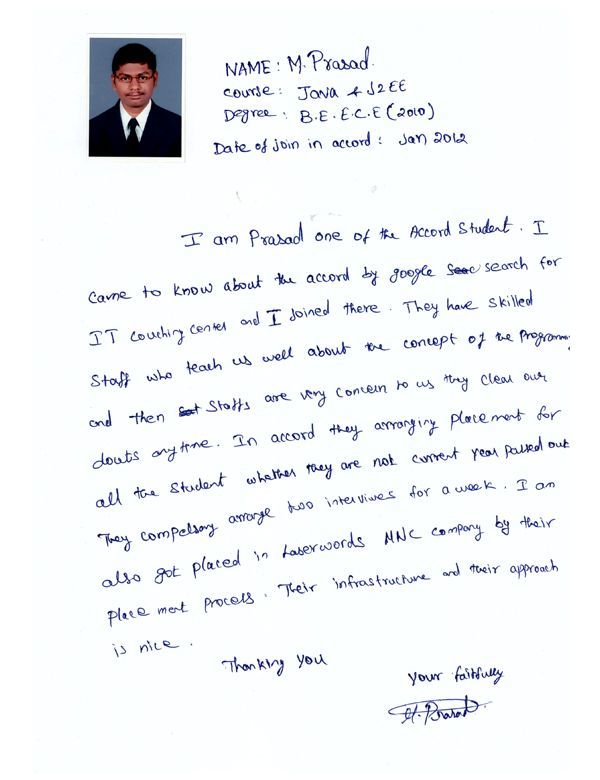 NAME : M. Prasad.
course : Java & J2EE
Degree : B.E. E.C.E (2010)
Date of join in accord : Jan 2012
I am Prasad one of the Accord Student. I
came to know about the accord by google search for
IT couching center and I Joined there. They have skilled
Staff who teach us well about the concept of the Programm
and then Staffs are very concern to us they clear our
douts anytime. In accord they arranging placement for
all the student whether they are not current year passed out
They compelsory arrange two interviwes for a week. I am
also got placed in Laserwords MNC company by their
place ment process. Their infrastructure and their approach
is nice.
Thanking you
your faithfully
M. Prasad.